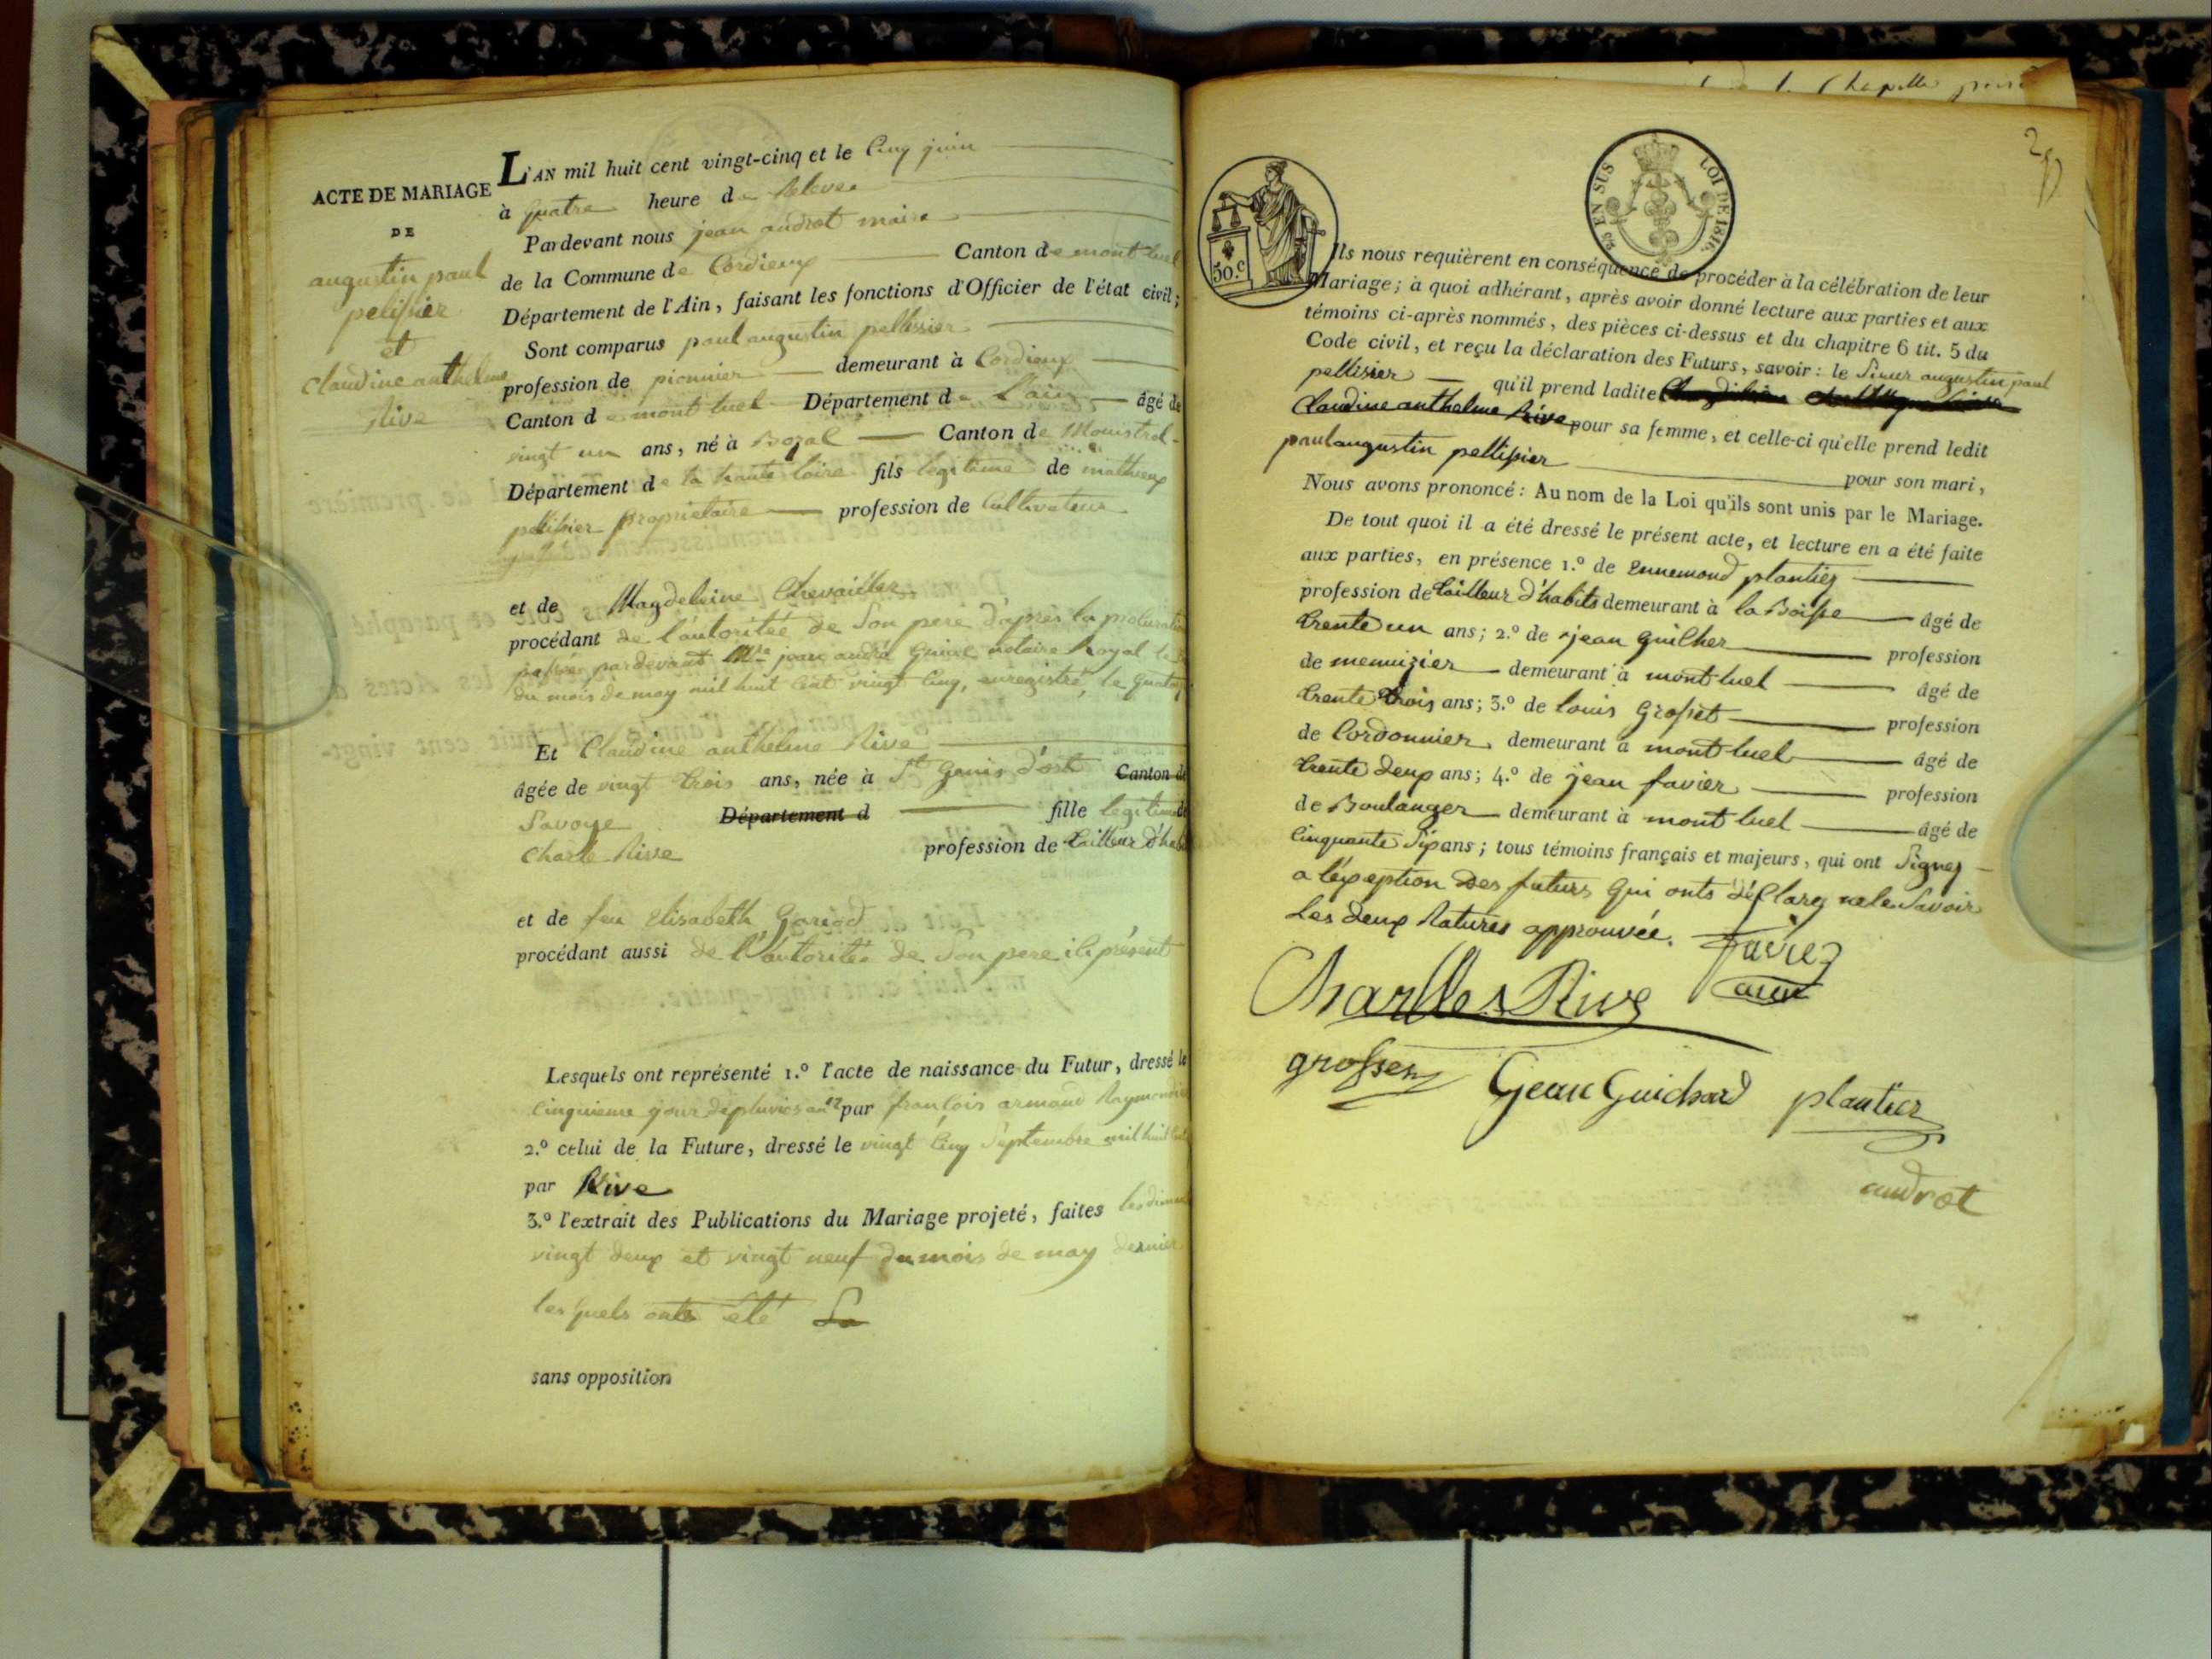 ACTE DE MARIAGE
DE
augustin paul
pelissier
et
Claudine anthelme
Rive
L'AN mil huit cent vingt-cinq et le Cinq juin
à quatre heure de Relevee
Pardevant nous jean androt maire
de la Commune de Cordieux Canton de montluel
Département de l'Ain, faisant les fonctions d'Officier de l'état civil;
Sont comparus paul augustin pellissier
profession de pionnier demeurant à Cordieux
Canton de montluel Département de l'ain âgé de
vingt un ans, né à Canton de Monistrol
Département de la haute loire fils legitime de mathieux
pelissier proprietaire profession de Cultivateur
et de Magdeleine
procédant de l'autoritée de Son pere d'après la
passée pardevant jean andré notaire Royal
du mois de may mil huit Cent vingt Cinq, enregistré, le
Et Claudine anthelme Rive
âgée de vingt trois ans, née à St Genis d'oste Canton de
Savoye Département d fille legitime de
Charle Rive profession de tailleur d'hab
et de feu Elisabeth Gariod
procédant aussi de l'autoritée de Son pere ici présent
Lesquels ont représenté 1.º l'acte de naissance du Futur, dressé le
Cinquieme jour de pluviose an 12 par françois armand
2.º celui de la Future, dressé le vingt Cinq Septembre mil huit
par Rive
3.º l'extrait des Publications du Mariage projeté, faites les
vingt deux et vingt neuf du mois de may dernier
lesquels onts été
sans opposition
50.c
25 EN SUS LOI DE 1816.
Ils nous requièrent en conséquence de procéder à la célébration de leur
Mariage; à quoi adhérant, après avoir donné lecture aux parties et aux
témoins ci-après nommés, des pièces ci-dessus et du chapitre 6 tit. 5 du
Code civil, et reçu la déclaration des Futurs, savoir: le Sieur augustin paul
pellissier qu'il prend ladite
Claudine anthelme Rive pour sa femme, et celle-ci qu'elle prend ledit
paul augustin pellissier pour son mari,
Nous avons prononcé: Au nom de la Loi qu'ils sont unis par le Mariage.
De tout quoi il a été dressé le présent acte, et lecture en a été faite
aux parties, en présence 1.º de Ennemond plantiez
profession de tailleur d'habits demeurant à la Boisse âgé de
trente un ans; 2.º de jean Guilher profession
de menuizier demeurant à montluel âgé de
trente trois ans; 3.º de louis Grosset profession
de Cordonnier demeurant à montluel âgé de
trente deux ans; 4.º de jean favier profession
de Boulanger demeurant à montluel âgé de
Cinquante Six ans; tous témoins français et majeurs, qui ont Signez
a l'exeption des futurs qui onts déClarez nele Savoir
Les deux Ratures approuvée.
Charlles Rive
grosset
Gean Guichard
plantier
androt